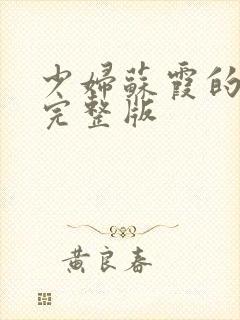 少婦蘇霞的
完整版
黃良春